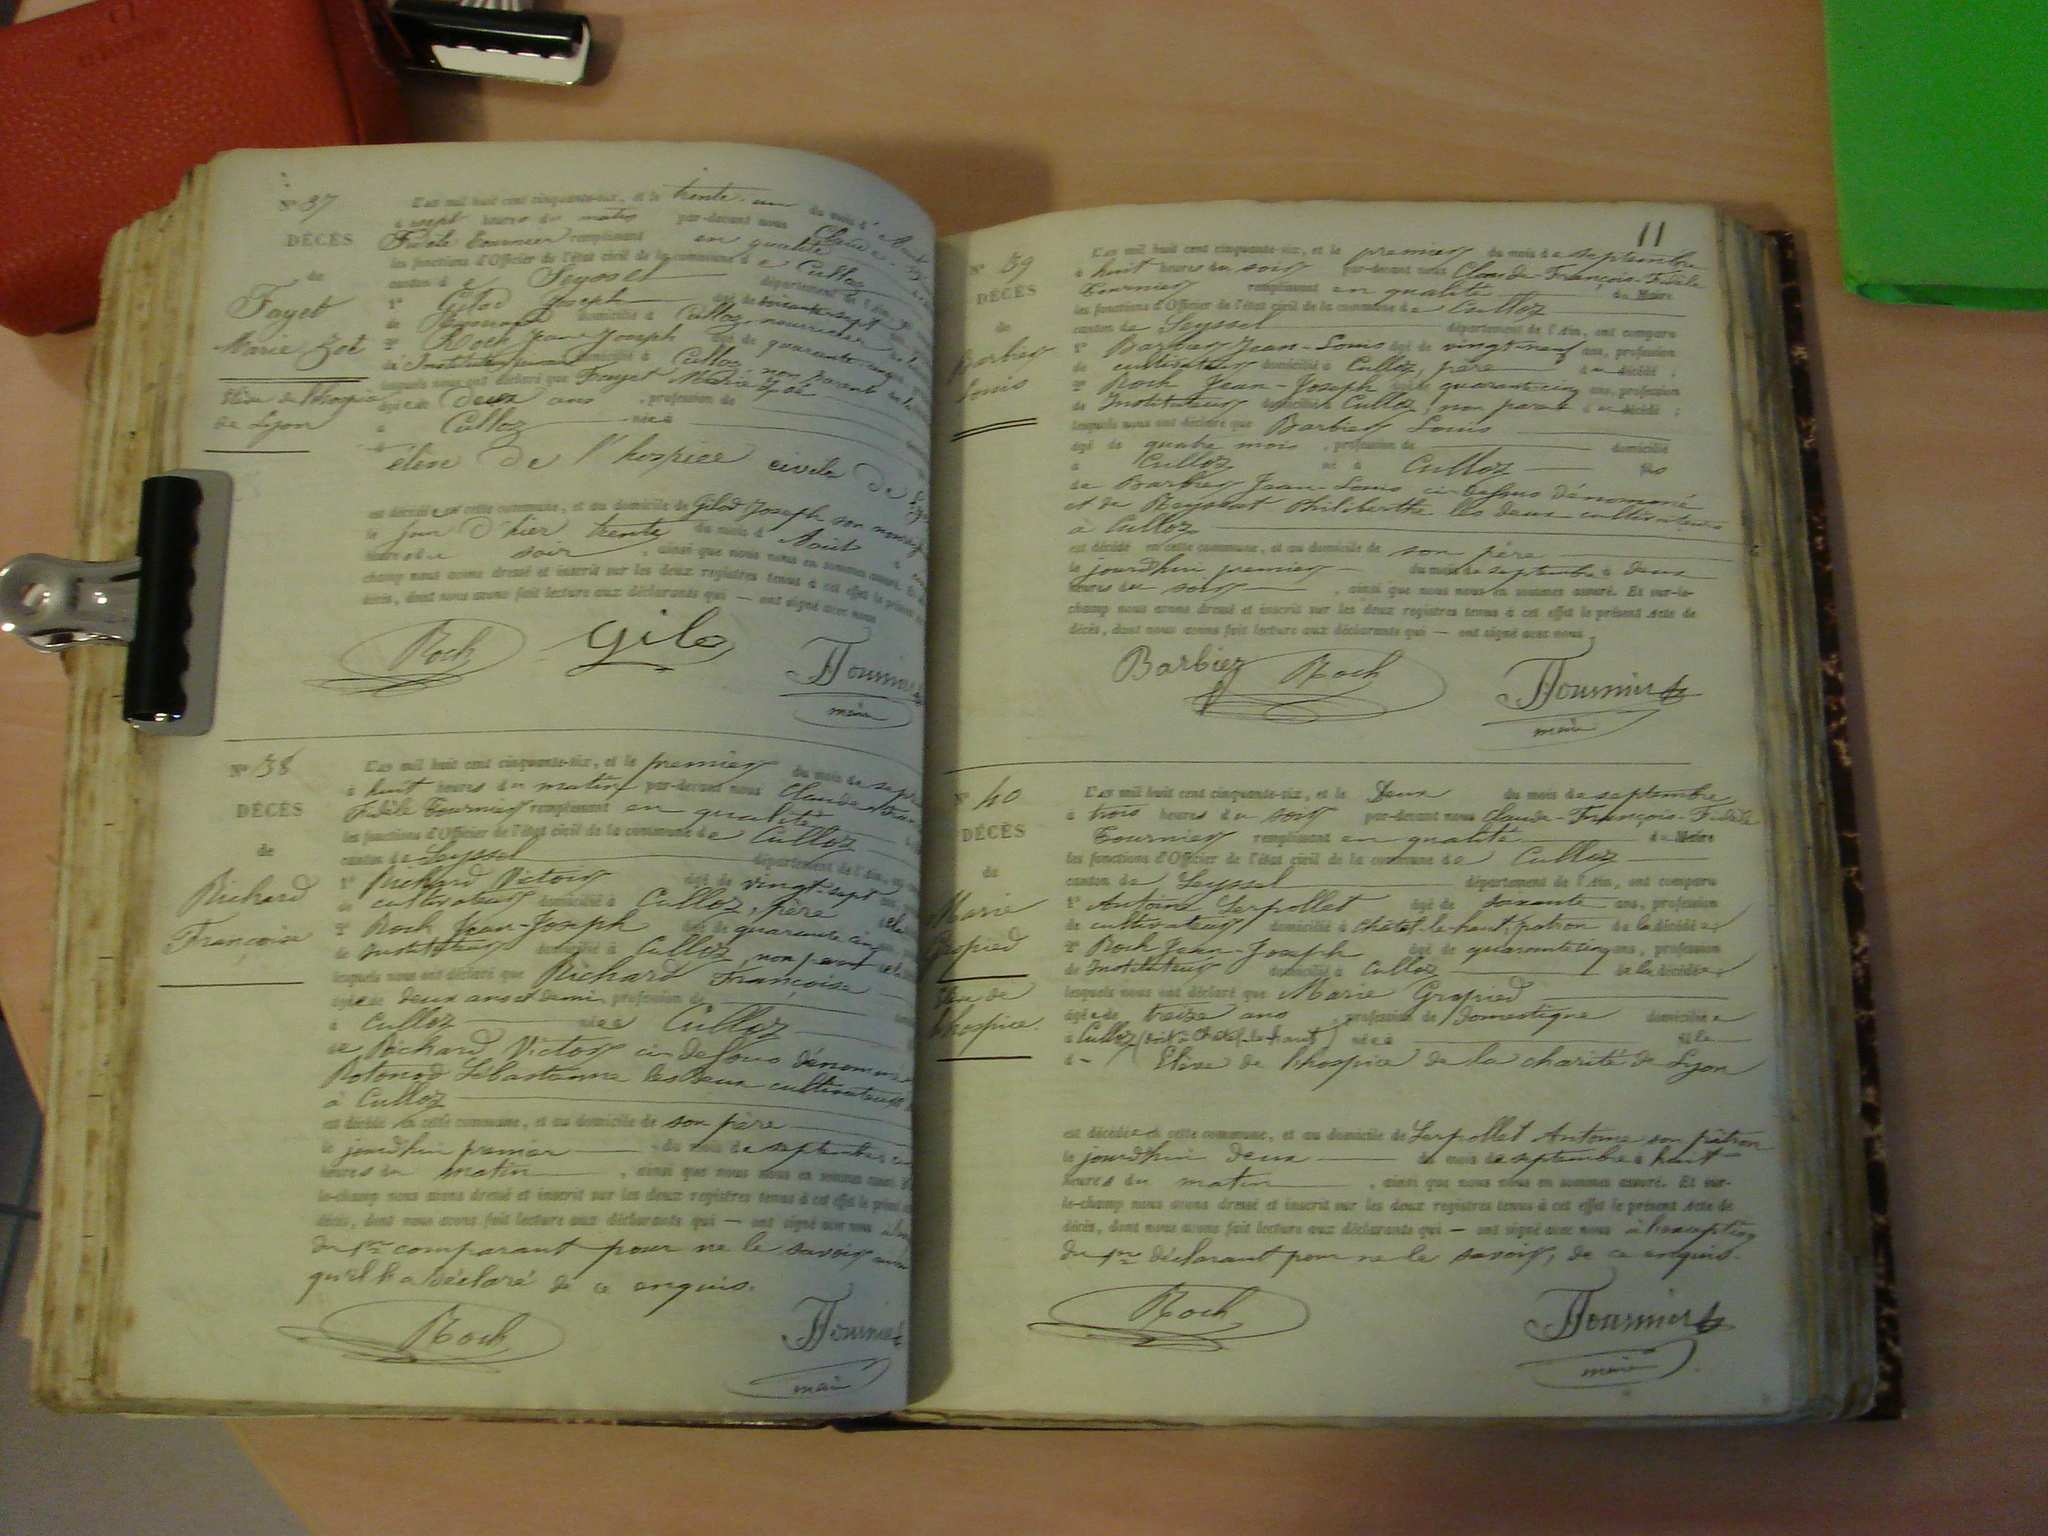 N° 37
DÉCÈS
de
Fayet
Marie Zoé
Élève de l'hospice
de Lyon
L'an mil huit cent cinquante-six, et le trente-un du mois d'
à sept heures du matin par-devant nous Claude
Fidèle Fournier remplissant en qualité
les fonctions d'Officier de l'état civil de la commune de Culloz
canton de Seyssel département de l'Ain
1° Gilod Joseph âgé de soixante-sept
de domicilié à Culloz, nourricier
2° Roch Jean-Joseph âgé de quarante-cinq
de Instituteur domicilié à Culloz, non parent de la
lesquels nous ont déclaré que Fayet Marie Zoé
âgée de deux ans , profession de
à Culloz née à
élève de l'hospice civile de
est décédée en cette commune, et au domicile de Gilod Joseph son
le jour d'hier trente du mois d'Août à
heures du soir , ainsi que nous nous en sommes assuré. Et
champ nous avons dressé et inscrit sur les deux registres tenus à cet effet le présent
décès, dont nous avons fait lecture aux déclarants qui — ont signé avec nous
Roch Gilod Fournier
maire
N° 38
DÉCÈS
de
Richard
Françoise
L'an mil huit cent cinquante-six, et le premier du mois de
à huit heures du matin par-devant nous Claude
Fidèle Fournier remplissant en qualité
les fonctions d'Officier de l'état civil de la commune de Culloz
canton de Seyssel département de l'Ain
1° Richard Victor âgé de vingt-sept
de cultivateur domicilié à Culloz, père
2° Roch Jean-Joseph âgé de quarante cinq
de Instituteur domicilié à Culloz, non parent
lesquels nous ont déclaré que Richard Françoise
âgée de deux ans et demi, profession de
à Culloz née à Culloz
de Richard Victor ci-dessus
Sébastienne les deux cultivateurs
à Culloz
est décédée en cette commune, et au domicile de son père
le jourd'hui premier du mois de septembre
heures du matin , ainsi que nous nous en sommes assuré. Et
le-champ nous avons dressé et inscrit sur les deux registres tenus à cet effet le présent
décès, dont nous avons fait lecture aux déclarants qui — ont signé avec nous
du 1er comparant pour ne le savoir
qu'il l'a déclaré de ce enquis.
Roch Fournier
maire
11
N° 39
DÉCÈS
de
Barbier
Louis
L'an mil huit cent cinquante-six, et le premier du mois de septembre
à huit heures du soir par-devant nous Claude-François-Fidèle
Fournier remplissant en qualité du Maire
les fonctions d'Officier de l'état civil de la commune de Culloz
canton de Seyssel département de l'Ain, ont comparu
1° Barbier Jean-Louis âgé de vingt-neuf ans, profession
de cultivateur domicilié à Culloz, père du décédé ;
2° Roch Jean-Joseph âgé de quarante cinq ans, profession
de Instituteur domicilié à Culloz, non parent du décédé ;
lesquels nous ont déclaré que Barbier Louis
âgé de quatre mois , profession de domicilié
à Culloz né à Culloz fils
de Barbier Jean-Louis ci-dessus dénommé
et de Philiberthe les deux cultivateurs
à Culloz
est décédé en cette commune, et au domicile de son père
le jourd'hui premier du mois de septembre à deux
heures du soir , ainsi que nous nous en sommes assuré. Et sur-le-
champ nous avons dressé et inscrit sur les deux registres tenus à cet effet le présent Acte de
décès, dont nous avons fait lecture aux déclarants qui — ont signé avec nous
Barbier Roch Fournier
maire
N° 40
DÉCÈS
de
Marie
Gropied
Élève de
l'hospice.
L'an mil huit cent cinquante-six, et le Deux du mois de septembre
à trois heures du soir par-devant nous Claude-François-Fidèle
Fournier remplissant en qualité du Maire
les fonctions d'Officier de l'état civil de la commune de Culloz
canton de Seyssel département de l'Ain, ont comparu
1° Antoine Serpollet âgé de soixante ans, profession
de cultivateur domicilié à Châtel-le-haut, patron de la décédée
2° Roch Jean-Joseph âgé de quarante cinq ans, profession
de Instituteur domicilié à Culloz de la décédée
lesquels nous ont déclaré que Marie Gropied
âgée de treize ans , profession de Domestique domiciliée
à Culloz née à fille
d— Élève de l'hospice de la charité de Lyon
est décédée en cette commune, et au domicile de Serpollet Antoine son patron
le jourd'hui deux du mois de septembre à huit
heures du matin , ainsi que nous nous en sommes assuré. Et sur-
le-champ nous avons dressé et inscrit sur les deux registres tenus à cet effet le présent Acte de
décès, dont nous avons fait lecture aux déclarants qui — ont signé avec nous à l'exception
du 1er déclarant pour ne le savoir, de ce enquis.
Roch Fournier
maire